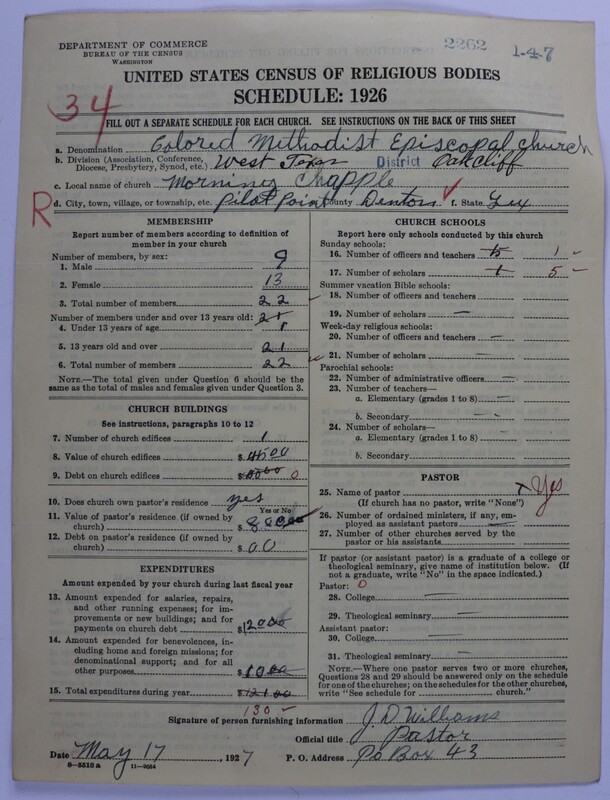 DEPARTMENT OF COMMERCE
BUREAU OF THE CENSUS
WASHINGTON
2262
1-4-7
UNITED STATES CENSUS OF RELIGIOUS BODIES
SCHEDULE: 1926
34
FILL OUT A SEPARATE SCHEDULE FOR EACH CHURCH. SEE INSTRUCTIONS ON THE BACK OF THIS SHEET
a. Denomination Colored Methodist Episcopal church
b. Division (Association, Conference, Diocese, Presbytery, Synod, etc.) West Texas District Oakcliff
c. Local name of church Morning Chapple
R
d. City, town, village, or township, etc. Pilot Point County Denton f. State Tex
MEMBERSHIP
Report number of members according to definition of
member in your church
Number of members, by sex:
1. Male 9
2. Female 13
3. Total number of members 22
Number of members under and over 13 years old: 21
4. Under 13 years of age 1
5. 13 years old and over 21
6. Total number of members 22
NOTE.—The total given under Question 6 should be
the same as the total of males and females given under Question 3.
CHURCH BUILDINGS
See instructions, paragraphs 10 to 12
7. Number of church edifices 1
8. Value of church edifices $
9. Debt on church edifices $ 0
10. Does church own pastor's residence yes
Yes or No
11. Value of pastor's residence (if owned by
church) $
12. Debt on pastor's residence (if owned by
church) $ 00
EXPENDITURES
Amount expended by your church during last fiscal year
13. Amount expended for salaries, repairs,
and other running expenses; for im-
provements or new buildings; and for
payments on church debt $
14. Amount expended for benevolences, in-
cluding home and foreign missions; for
denominational support; and for all
other purposes $
15. Total expenditures during year $
130-
CHURCH SCHOOLS
Report here only schools conducted by this church
Sunday schools:
16. Number of officers and teachers 15 1-
17. Number of scholars 1 5-
Summer vacation Bible schools:
18. Number of officers and teachers
19. Number of scholars —
Week-day religious schools:
20. Number of officers and teachers —
21. Number of scholars —
Parochial schools:
22. Number of administrative officers —
23. Number of teachers—
a. Elementary (grades 1 to 8) —
b. Secondary —
24. Number of scholars—
a. Elementary (grades 1 to 8) —
b. Secondary
PASTOR
25. Name of pastor x Yes
(If church has no pastor, write "None")
26. Number of ordained ministers, if any, em-
ployed as assistant pastors —
27. Number of other churches served by the
pastor or his assistants
If pastor (or assistant pastor) is a graduate of a college or
theological seminary, give name of institution below. (If
not a graduate, write "No" in the space indicated.)
Pastor: 0
28. College —
29. Theological seminary —
Assistant pastor:
30. College —
31. Theological seminary —
NOTE.—Where one pastor serves two or more churches,
Questions 28 and 29 should be answered only on the schedule
for one of the churches; on the schedules for the other churches,
write "See schedule for ........ church."
Signature of person furnishing information J.D Williams
Official title Pastor
Date May 17, 1927 P. O. Address Po Box 43
8-5518 a 11-9684